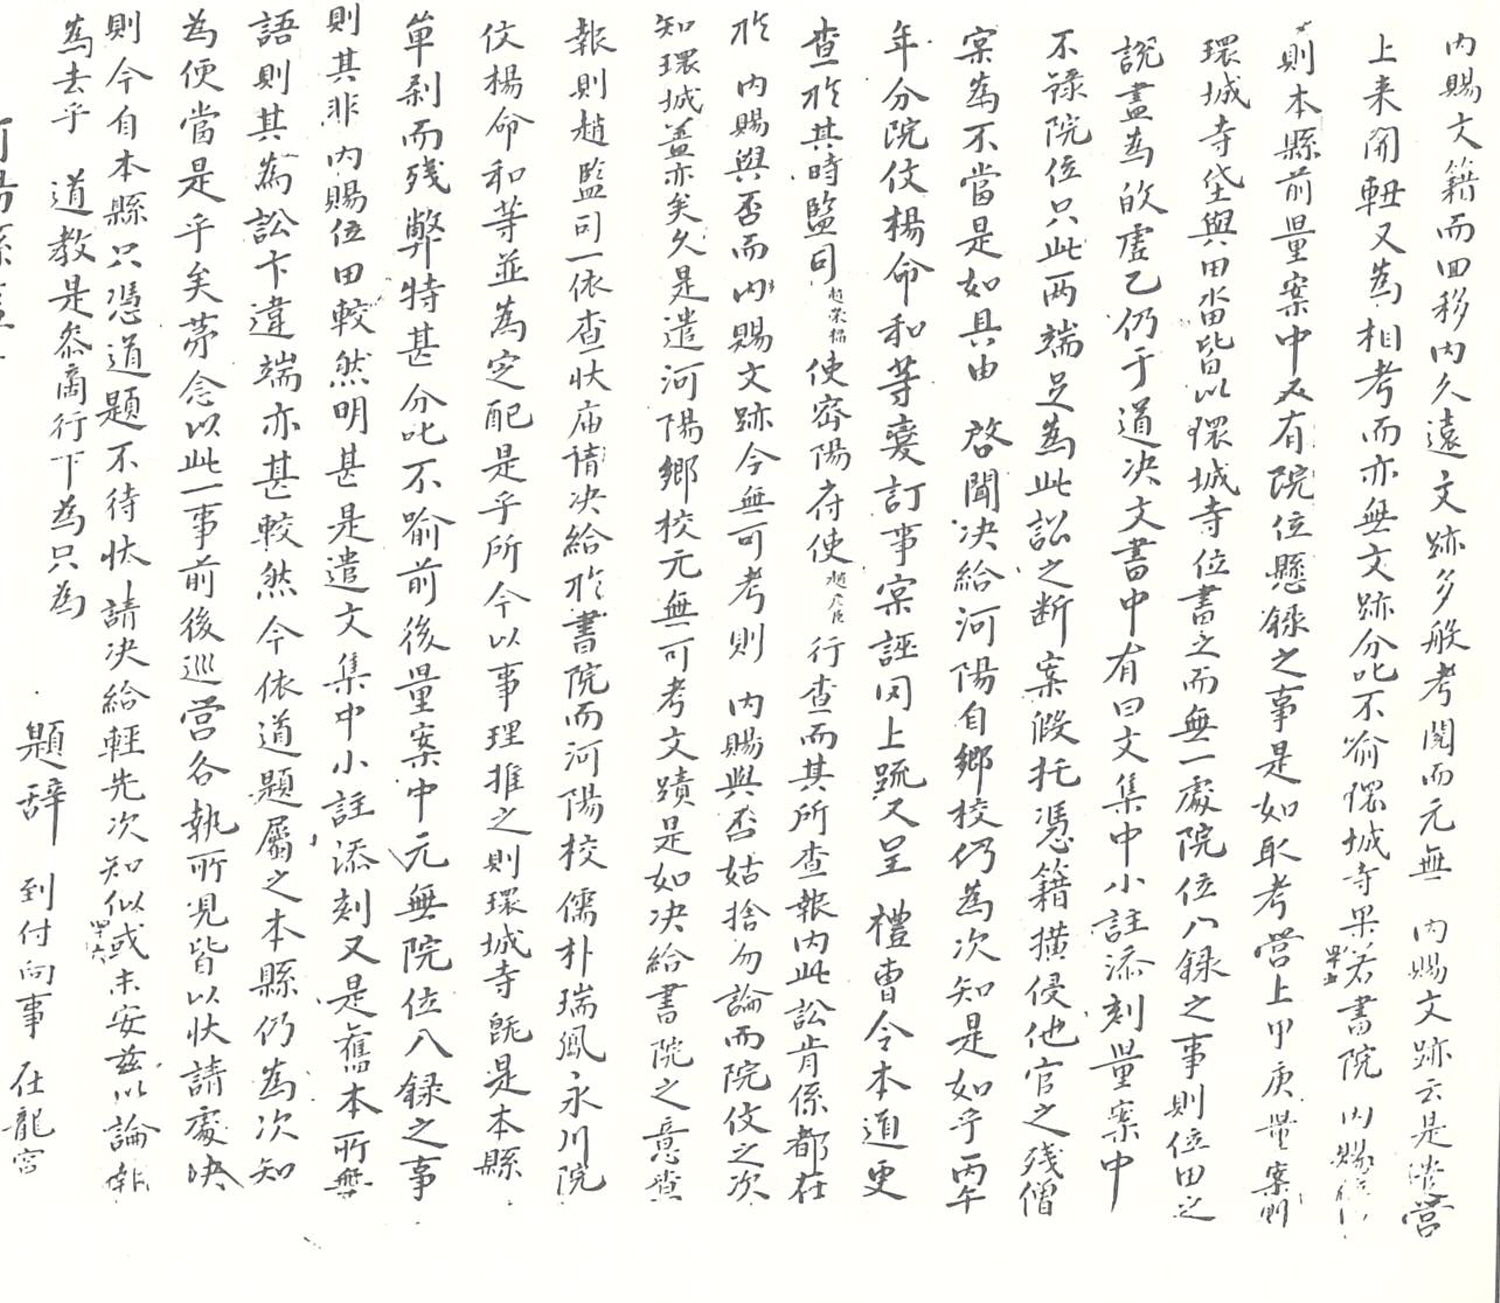 內賜文籍而回移內久遠文跡多般考閱而元無 內賜文跡云是遣營
上来開輊又為相考而亦無文跡分叱不喻環城寺果若書院內賜
則本縣前量案中及有院位懸錄之事是如取考營上甲庚量案則
環城寺垈與田畓皆以環城寺位書之而無一處院位入錄之事則位田之
說盡為的虛乙仍于道决文書中有曰文集中小註添刻量案中
不錄院位只此两端足為此訟之断案假托憑籍橫侵他官之残僧
案為不當是如具由 啓聞决給河陽自鄉校仍為次知是如乎丙午
年分院伩楊命和等變訂事案誣罔上疏又呈 禮曹令本道更
查於其時監司趙榮福使密陽府使趙 行查而其所查報內此訟肯係都在
於 內賜與否而內賜文跡今無可考則 內賜與否姑捨勿論而院伩之次
知環城盖亦矣久是遣河陽鄉校元無可考文蹟是如决給書院之意查
報則趙監司一依查状庙請决給於書院而河陽校儒朴瑞鳳永川院
伩楊命和等並為定配是乎所今以事理推之則環城寺既是本縣
軍剎而残弊特甚分叱不喻前後量案中元無院位入錄之事
則其非內賜位田較然明甚是遣文集中小註添刻又是舊本所無
語則其為訟卞違端亦甚較然今依道題屬之本縣仍為次知
為便當是乎矣苐念以此一事前後巡營各執所見皆以状請處决
則今自本縣只憑道題不待状請决給輕先次知似或未安玆以論報
為去乎 道教是叅商行下為只為
題辞 到付向事 在龍宮